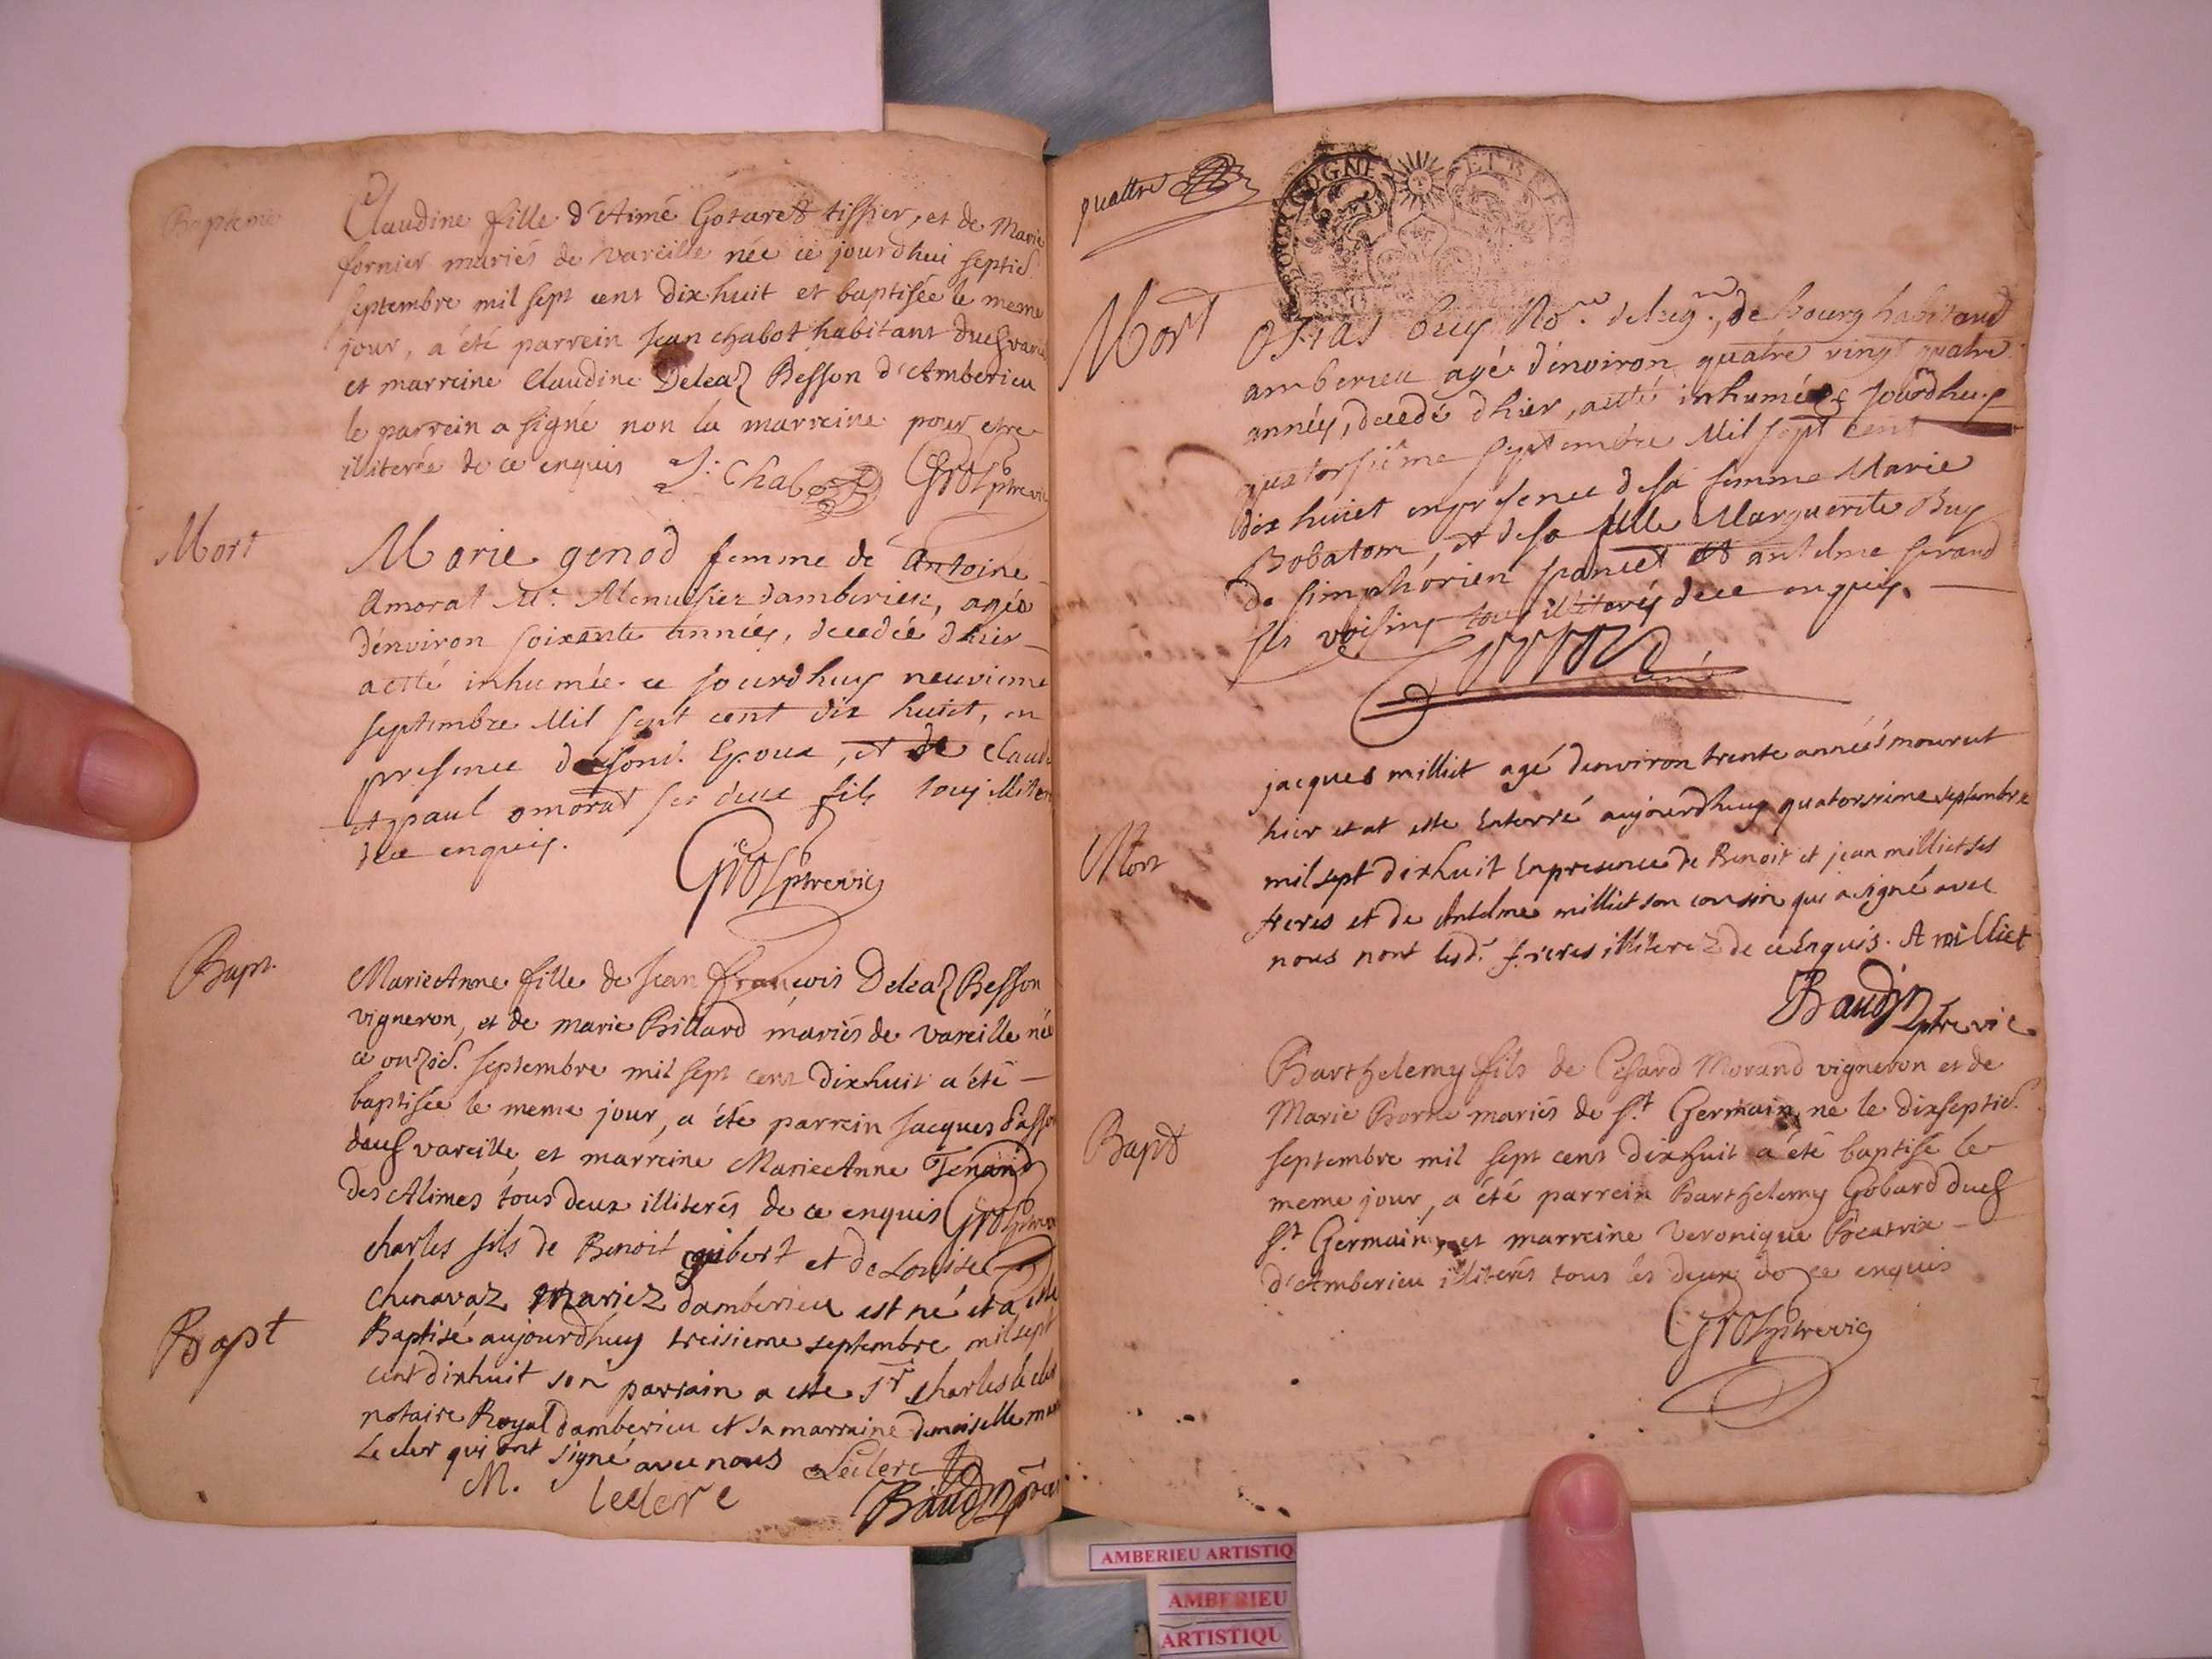 Bapteme
Claudine fille d'Aimé Gotaret tissier, et de Marie
fornier mariés de vareille née ce jourdhui septie.
septembre mil sept cent dixhuit et baptisée le meme
jour, a été parrein Jean chabot habitant dud vareille
et marreine Claudine Deleaz Besson d'Amberieu
le parrein a signé non la marreine pour etre
illiterée de ce enquis J: Chabot Gros ptre vic
Mort
Marie genod femme de Antoine
Amorat Me. Menuisier damberieu, agée
d'environ soixante années, decedée dhier
a etté inhumée ce jourdhuy neuvieme
septembre Mil sept cent dix huict, en
presence de son Epoux, et de Claude
et paul amorat ses deux fils tous illiterés
de ce enquis.
Gros ptre vic
Bapt.
Marie Anne fille de Jean francois Deleaz Besson
vigneron, et de marie Billard mariés de vareille née
ce onzie. septembre mil sept cent dixhuit a été
baptisée le meme jour, a été parrein Jacques
dud vareille et marreine Marie Anne Tenand
des Alimes tous deux illiterés de ce enquis Gros ptre vic
Bapt
charles fils de Benoit gibert et de Louise
chenavaz mariez damberieu est né et a esté
Baptisé aujourdhuy treisieme septembre mil sept
cent dixhuit son parrain a esté sr charles le cler
notaire Royal damberieu et sa marraine demoiselle marie
Le cler qui ont signé avec nous Leclerc
M. leclerc Baudin ptre vic
quattre
BOURGOGNE ET BRESSE
Mort
Osias buy No.re de bourg habitand
amberieu agé d'environ quatre vingt quatre
années, decedé dhier, a etté inhumé ce jourdhuy
quatorsiême septembre Mil sept cent
dix huict en presence de sa femme Marie
Bobaton, et de sa fille Marguerite Buy
De simphórien et antelme serand
ses voisins tous illiterés de ce enquis.
Mort
jacques milliet agé denviron trente années mourut
hier et at esté Enterré aujourdhuy quatorsieme septembre
mil sept dixhuit En presence de Benoit et jean milliet ses
freres et de Antelme milliet son cousin qui a signé avec
nous nont lesd. freres illiterez de ce Enquis. A milliet
Baudin ptre vic
Bapt
Barthelemy fils de Cesard Morand vigneron et de
Marie Borne mariés de St Germain, ne le dixseptie.
septembre mil sept cens dixhuit a été baptise le
meme jour, a été parrein Barthelemy Gobard dud
St Germain, et marreine Veronique Beatrix
d'Amberieu illiterés tous les deux de ce enquis
Gros ptre vic
AMBERIEU ARTISTIQ
AMBERIEU
ARTISTIQU